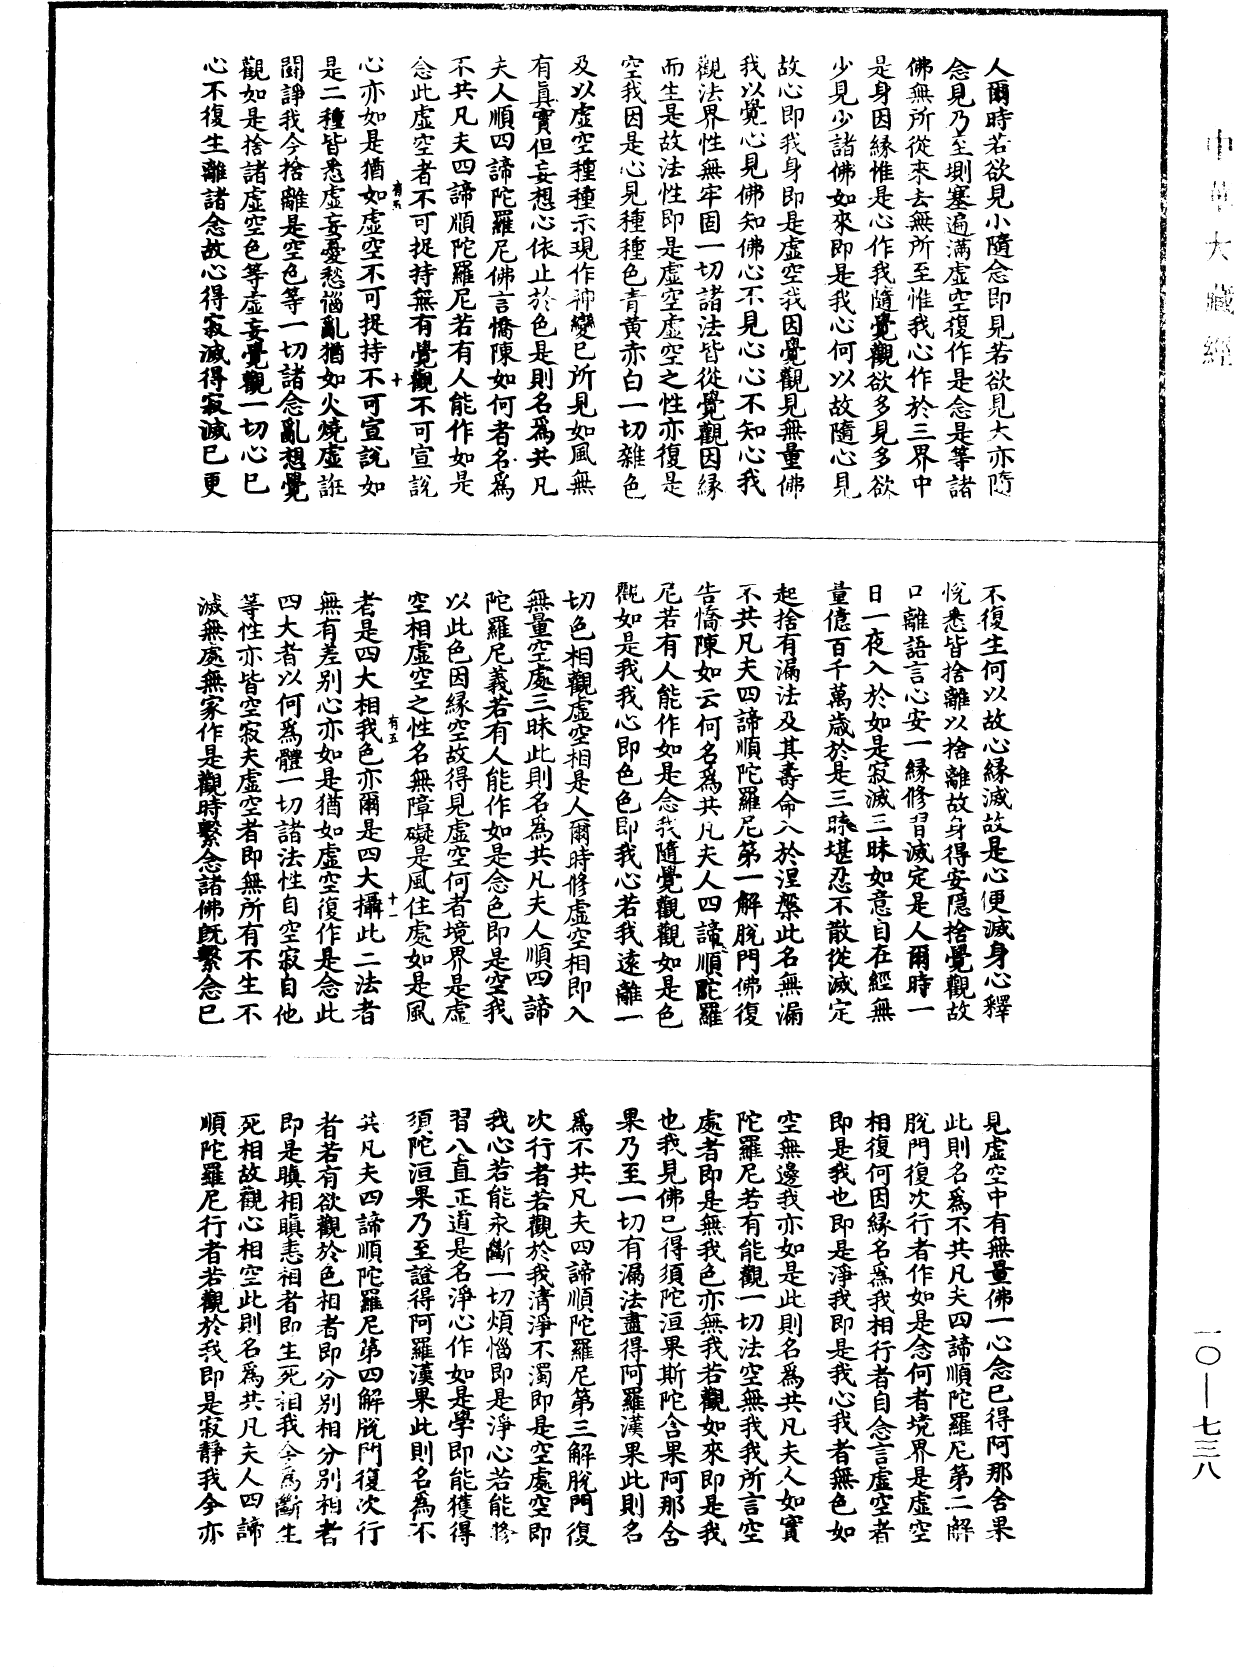 中華大藏經
人爾時若欲見小隨念即見若欲見大亦隨
念見乃至㘽塞遍滿虛空復作是念是等諸
佛無所從來去無所至惟我心作於三界中
是身因緣惟是心作我隨覺觀欲多見多欲
少見少諸佛如來即是我心何以故隨心見
故心即我身即是虛空我因覺觀見無量佛
我以覺心見佛知佛心不見心心不知心我
觀法界性無牢固一切諸法皆從覺觀因緣
而生是故法性即是虛空虛空之性亦復是
空我因是心見種種色青黃赤白一切雜色
及以虛空種種示現作神變已所見如風無
有真實但妄想心依止於色是則名為共凡
夫人順四諦陀羅尼佛言憍陳如何者名為
不共凡夫四諦順陀羅尼若有人能作如是
念此虛空者不可捉持無有覺觀不可宣說
有五
十
心亦如是猶如虛空不可捉持不可宣說如
是二種皆悉虛妄憂愁惱亂猶如火燒虛誑
鬪諍我今捨離是空色等一切諸念亂想覺
觀如是捨諸虛空色等虛妄覺觀一切心已
心不復生離諸念故心得寂滅得寂滅已更
不復生何以故心緣滅故是心便滅身心釋
悅悉皆捨離以捨離故身得安隱捨覺觀故
口離語言心安一緣修習滅定是人爾時一
日一夜入於如是寂滅三昧如意自在經無
量億百千萬歲於是三昧堪忍不散從滅定
起捨有漏法及其壽命入於涅槃此名無漏
不共凡夫四諦順陀羅尼第一解脫門佛復
告憍陳如云何名為共凡夫人四諦順陀羅
尼若有人能作如是念我隨覺觀觀如是色
觀如是我我心即色色即我心若我遠離一
切色相觀虛空相是人爾時修虛空相即入
無量空處三昧此則名為共凡夫人順四諦
陀羅尼義若有人能作如是念色即是空我
以此色因緣空故得見虛空何者境界是虛
空相虛空之性名無障礙是風住處如是風
有五
十一
者是四大相我色亦爾是四大攝此二法者
無有差別心亦如是猶如虛空復作是念此
四大者以何為體一切諸法性自空寂自他
等性亦皆空寂夫虛空者即無所有不生不
滅無處無家作是觀時繫念諸佛既繫念已
見虛空中有無量佛一心念已得阿那含果
此則名為不共凡夫四諦順陀羅尼第二解
脫門復次行者作如是念何者境界是虛空
相復何因緣名為我相行者自念言虛空者
即是我也即是淨我即是我心我者無色如
空無邊我亦如是此則名為共凡夫人如實
陀羅尼若有能觀一切法空無我我所言空
處者即是無我色亦無我若觀如來即是我
也我見佛已得須陀洹果斯陀含果阿那含
果乃至一切有漏法盡得阿羅漢果此則名
為不共凡夫四諦順陀羅尼第三解脫門復
次行者若觀於我清淨不濁即是空處空即
我心若能永斷一切煩惱即是淨心若能修
習八直正道是名淨心作如是學即能獲得
須陀洹果乃至證得阿羅漢果此則名為不
共凡夫四諦順陀羅尼第四解脫門復次行
者若有欲觀於色相者即分別相分別相者
即是瞋相瞋恚相者即生死相我今為斷生
死相故觀心相空此則名為共凡夫人四諦
順陀羅尼行者若觀於我即是寂靜我今亦
一〇—七三八